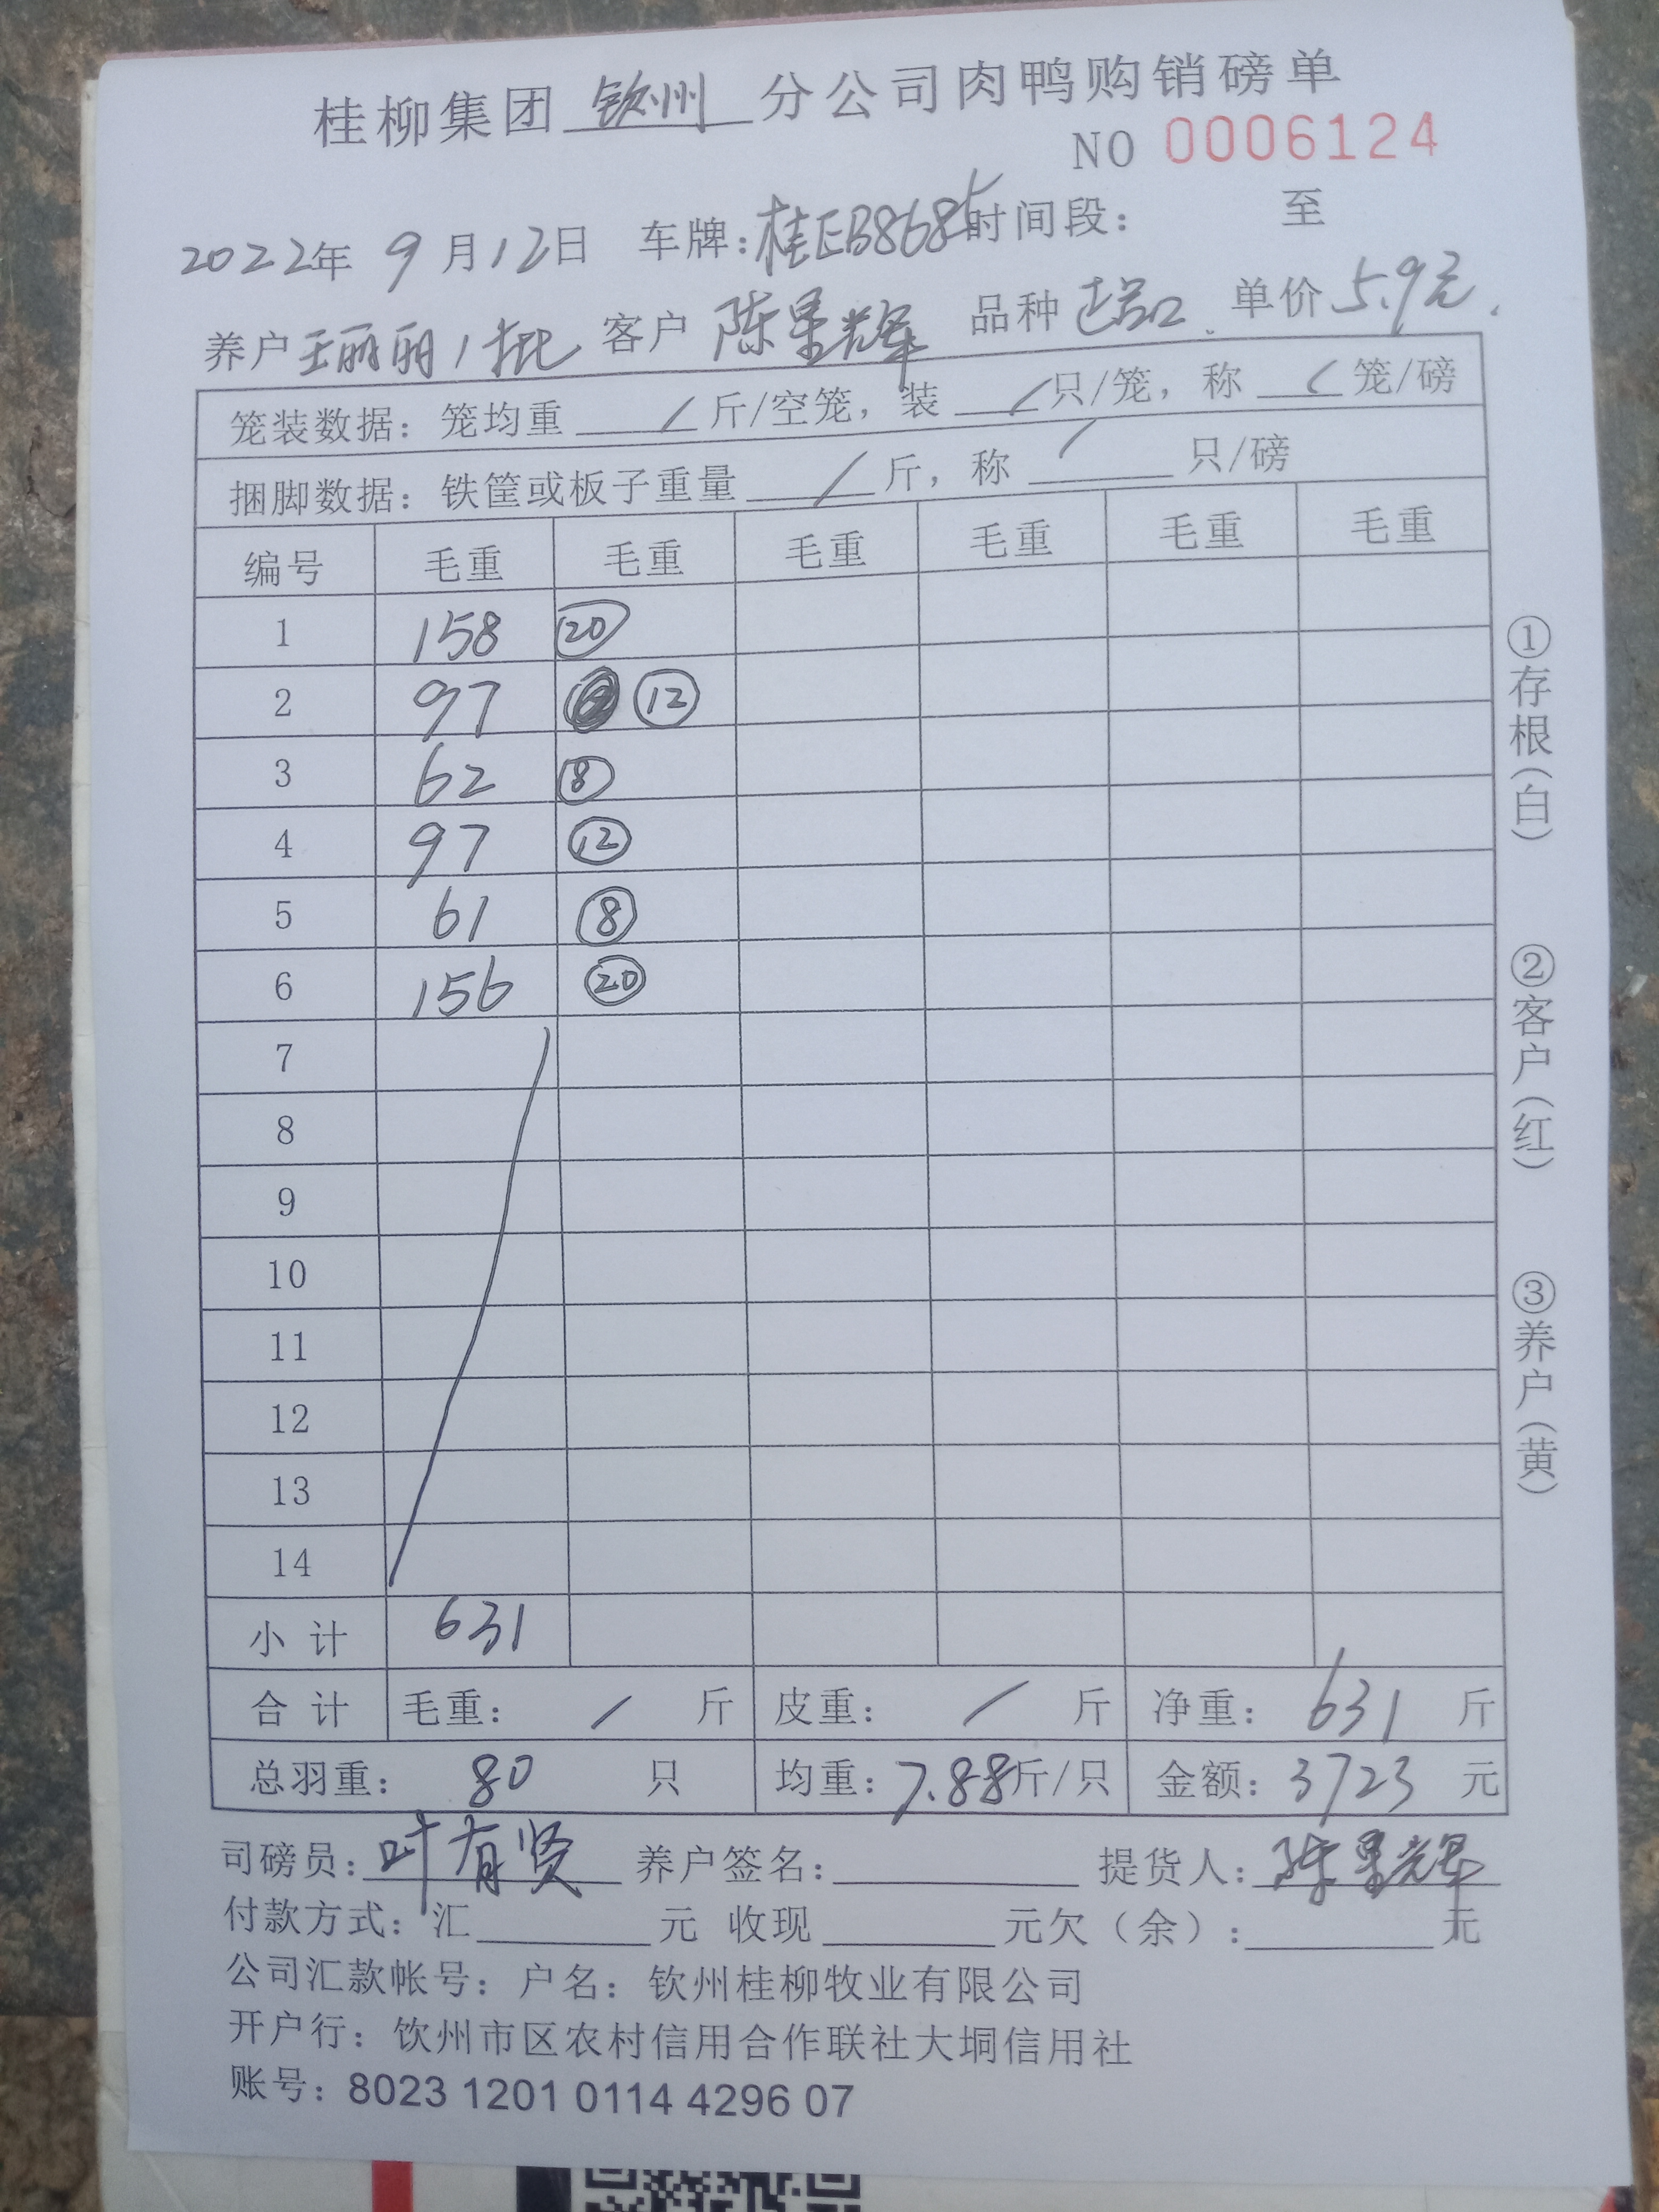 桂柳集团 钦州 分公司肉鸭购销磅单
NO 0006124
2022年 9月12日 车牌:桂EB8685 时间段: 至
养户 王丽丽1批 客户 陈星辉 品种 单价 5.9元.
笼装数据: 笼均重 / 斤/空笼, 装 / 只/笼, 称 / 笼/磅
捆脚数据: 铁筐或板子重量 / 斤, 称 / 只/磅
编号 毛重 毛重 毛重 毛重 毛重 毛重
1 158 ⑳
2 97 ⑫
3 62 ⑧
4 97 ⑫
5 61 ⑧
6 156 ⑳
7
8
9
10
11
12
13
14
小计 631
合计 毛重: / 斤 皮重: / 斤 净重: 631 斤
总羽重: 80 只 均重: 7.88斤/只 金额: 3723 元
司磅员: 叶有贤 养户签名: 提货人: 陈星辉
付款方式: 汇 元 收现 元欠(余): 元
公司汇款帐号: 户名: 钦州桂柳牧业有限公司
开户行: 钦州市区农村信用合作联社大垌信用社
账号: 8023 1201 0114 4296 07
①存根(白)
②客户(红)
③养户(黄)